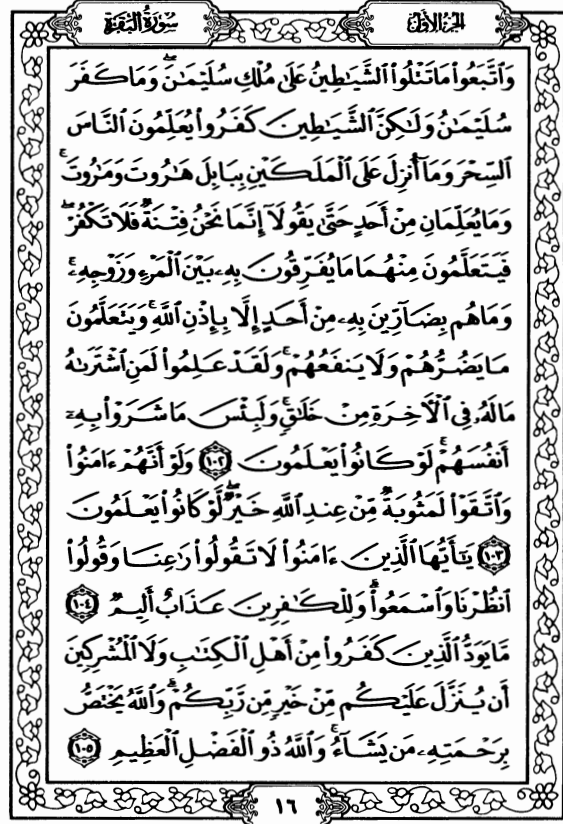 سُورَةُ البَقَرَةِ
الجُزءُ الأَوَّلُ
وَٱتَّبَعُوا۟ مَا تَتْلُوا۟ ٱلشَّيَٰطِينُ عَلَىٰ مُلْكِ سُلَيْمَٰنَۖ وَمَا كَفَرَ
سُلَيْمَٰنُ وَلَٰكِنَّ ٱلشَّيَٰطِينَ كَفَرُوا۟ يُعَلِّمُونَ ٱلنَّاسَ
ٱلسِّحْرَ وَمَآ أُنزِلَ عَلَى ٱلْمَلَكَيْنِ بِبَابِلَ هَٰرُوتَ وَمَٰرُوتَۚ
وَمَا يُعَلِّمَانِ مِنْ أَحَدٍ حَتَّىٰ يَقُولَآ إِنَّمَا نَحْنُ فِتْنَةٌ فَلَا تَكْفُرْۖ
فَيَتَعَلَّمُونَ مِنْهُمَا مَا يُفَرِّقُونَ بِهِۦ بَيْنَ ٱلْمَرْءِ وَزَوْجِهِۦۚ
وَمَا هُم بِضَآرِّينَ بِهِۦ مِنْ أَحَدٍ إِلَّا بِإِذْنِ ٱللَّهِۚ وَيَتَعَلَّمُونَ
مَا يَضُرُّهُمْ وَلَا يَنفَعُهُمْۚ وَلَقَدْ عَلِمُوا۟ لَمَنِ ٱشْتَرَىٰهُ
مَا لَهُۥ فِى ٱلْءَاخِرَةِ مِنْ خَلَٰقٍۚ وَلَبِئْسَ مَا شَرَوْا۟ بِهِۦٓ
أَنفُسَهُمْۚ لَوْ كَانُوا۟ يَعْلَمُونَ ١٠٢ وَلَوْ أَنَّهُمْ ءَامَنُوا۟
وَٱتَّقَوْا۟ لَمَثُوبَةٌ مِّنْ عِندِ ٱللَّهِ خَيْرٌۖ لَّوْ كَانُوا۟ يَعْلَمُونَ
١٠٣ يَٰٓأَيُّهَا ٱلَّذِينَ ءَامَنُوا۟ لَا تَقُولُوا۟ رَٰعِنَا وَقُولُوا۟
ٱنظُرْنَا وَٱسْمَعُوا۟ۗ وَلِلْكَٰفِرِينَ عَذَابٌ أَلِيمٌ ١٠٤
مَّا يَوَدُّ ٱلَّذِينَ كَفَرُوا۟ مِنْ أَهْلِ ٱلْكِتَٰبِ وَلَا ٱلْمُشْرِكِينَ
أَن يُنَزَّلَ عَلَيْكُم مِّنْ خَيْرٍ مِّن رَّبِّكُمْۗ وَٱللَّهُ يَخْتَصُّ
بِرَحْمَتِهِۦ مَن يَشَآءُۚ وَٱللَّهُ ذُو ٱلْفَضْلِ ٱلْعَظِيمِ ١٠٥
١٦